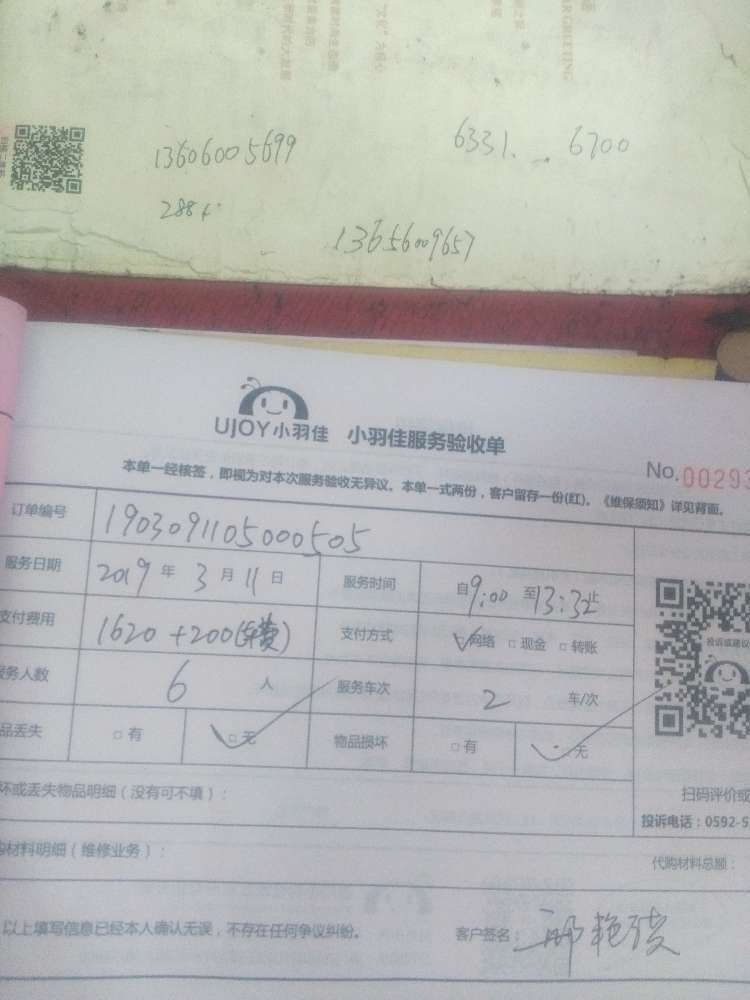 13606005699
6331. 6700
288+
13656009657
UJOY小羽佳 小羽佳服务验收单
No.00293
本单一经核签，即视为对本次服务验收无异议。本单一式两份，客户留存一份(红)。《维保须知》详见背面。
订单编号 1903091105000505
服务日期 2019年3月11日 服务时间 自9:00至13:32止
支付费用 1620+200(车费) 支付方式 网络 □现金 □转账
投诉或建议
务人数 6人 服务车次 2 车/次
品丢失 □有 □无 物品损坏 □有 □无
坏或丢失物品明细（没有可不填）：
扫码评价或
投诉电话：0592-5
购材料明细（维修业务）：
代购材料总额：
以上填写信息已经本人确认无误，不存在任何争议纠纷。 客户签名：